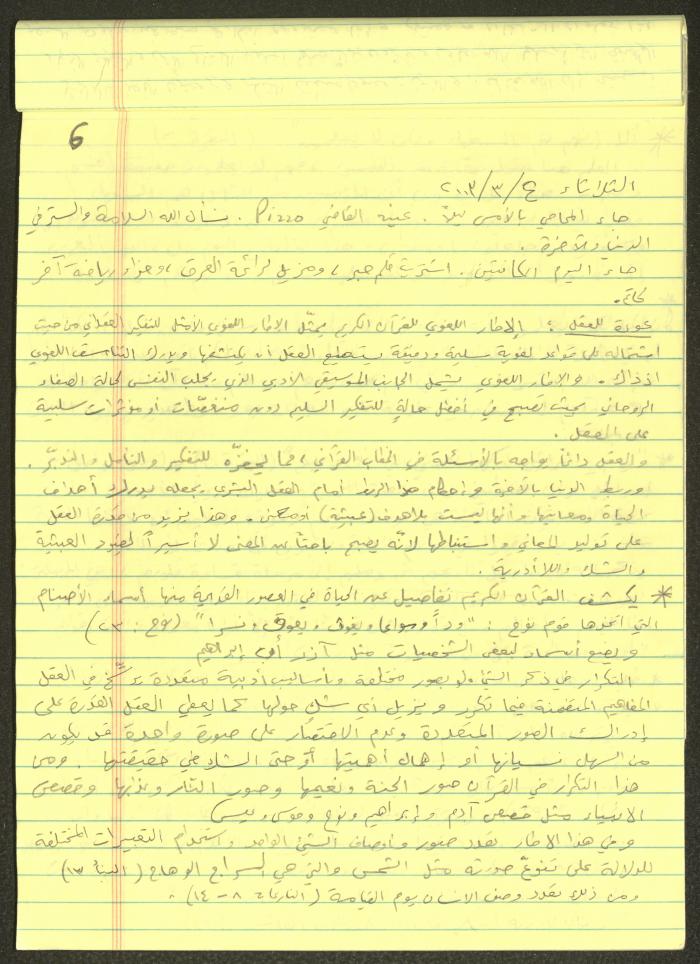 6
الثلاثاء ٤/٣/٢٠٠٣
جاء المحامي بالأمس ليلاً. عينه القاضي Pizzo. نسأل الله السلامة والستر في
الدنيا والآخرة.
جاء اليوم الكانتين. اشتريت قلم حبر، ومزيل لرائحة العرق، وحذاء رياضة آخر
لحاتم.
عودة للعقل: الإطار اللغوي للقرآن الكريم يمثّل الإطار اللغوي الأمثل للتفكير العقلاني من حيث
اشتماله على قواعد لغوية سليمة ودقيقة يستطيع العقل أن يكتشفها ويدرك التناسق اللغوي
اذذاك. والإطار اللغوي يشمل الجانب الموسيقي الأدبي الذي يجلب النفس لحالة الصفاء
الروحاني بحيث تصبح في أفضل حالة للتفكير السليم دون منغصّات أو مؤثرات سلبية
على العقل.
والعقل دائماً يواجه بالأسئلة في الخطاب القرآني، مما يحفزّه للتفكير والتأمل والتدبّر.
وربط الدنيا بالآخرة وإحكام هذا الربط أمام العقل البشري يجعله يدرك أهداف
الحياة ومعانيها وأنها ليست بلا هدف (عبثية) أو معنى. وهذا يزيد من قدرة العقل
على توليد المعاني واستنباطها لأنّه يصبح باحثاً عن المعنى لا أسيراً لقيود العبثية
والشك واللاأدرية.
* يكشف القرآن الكريم تفاصيل عن الحياة في العصور القديمة منها أسماء الأصنام
التي اتخذها قوم نوح: "وداً وسواعا ويغوث ويعوق ونسرا" (نوح: ٢٣)
ويضع أسماء لبعض الشخصيات مثل آزر أبي إبراهيم
التكرار في ذكر الشيء ولو بصور مختلفة وبأساليب أدبية متعددة يرسّخ في العقل
المفاهيم المتضمنة فيما تكرر ويزيل أي شك حولها كما يعطي العقل القدرة على
إدراك الصور المتعددة وعدم الاقتصار على صورة واحدة قد يكون
من السهل نسيانها أو إهمال أهميتها أو حتى الشك في حقيقتها. ومن
هذا التكرار في القرآن صور الجنة ونعيمها وصور النار وعذابها وقصص
الانبياء مثل قصص آدم وإبراهيم ونوح وموسى وعيسى
وفي هذا الإطار تعدد صور وأوصاف الشيء الواحد واستخدام التعبيرات المختلفة
للدلالة على تنوّع صورته مثل الشمس والتي هي السراج الوهاج (النبأ ١٣)
ومن ذلك تعدد وصف الانسان يوم القيامة (النازعات ٨-١٤).